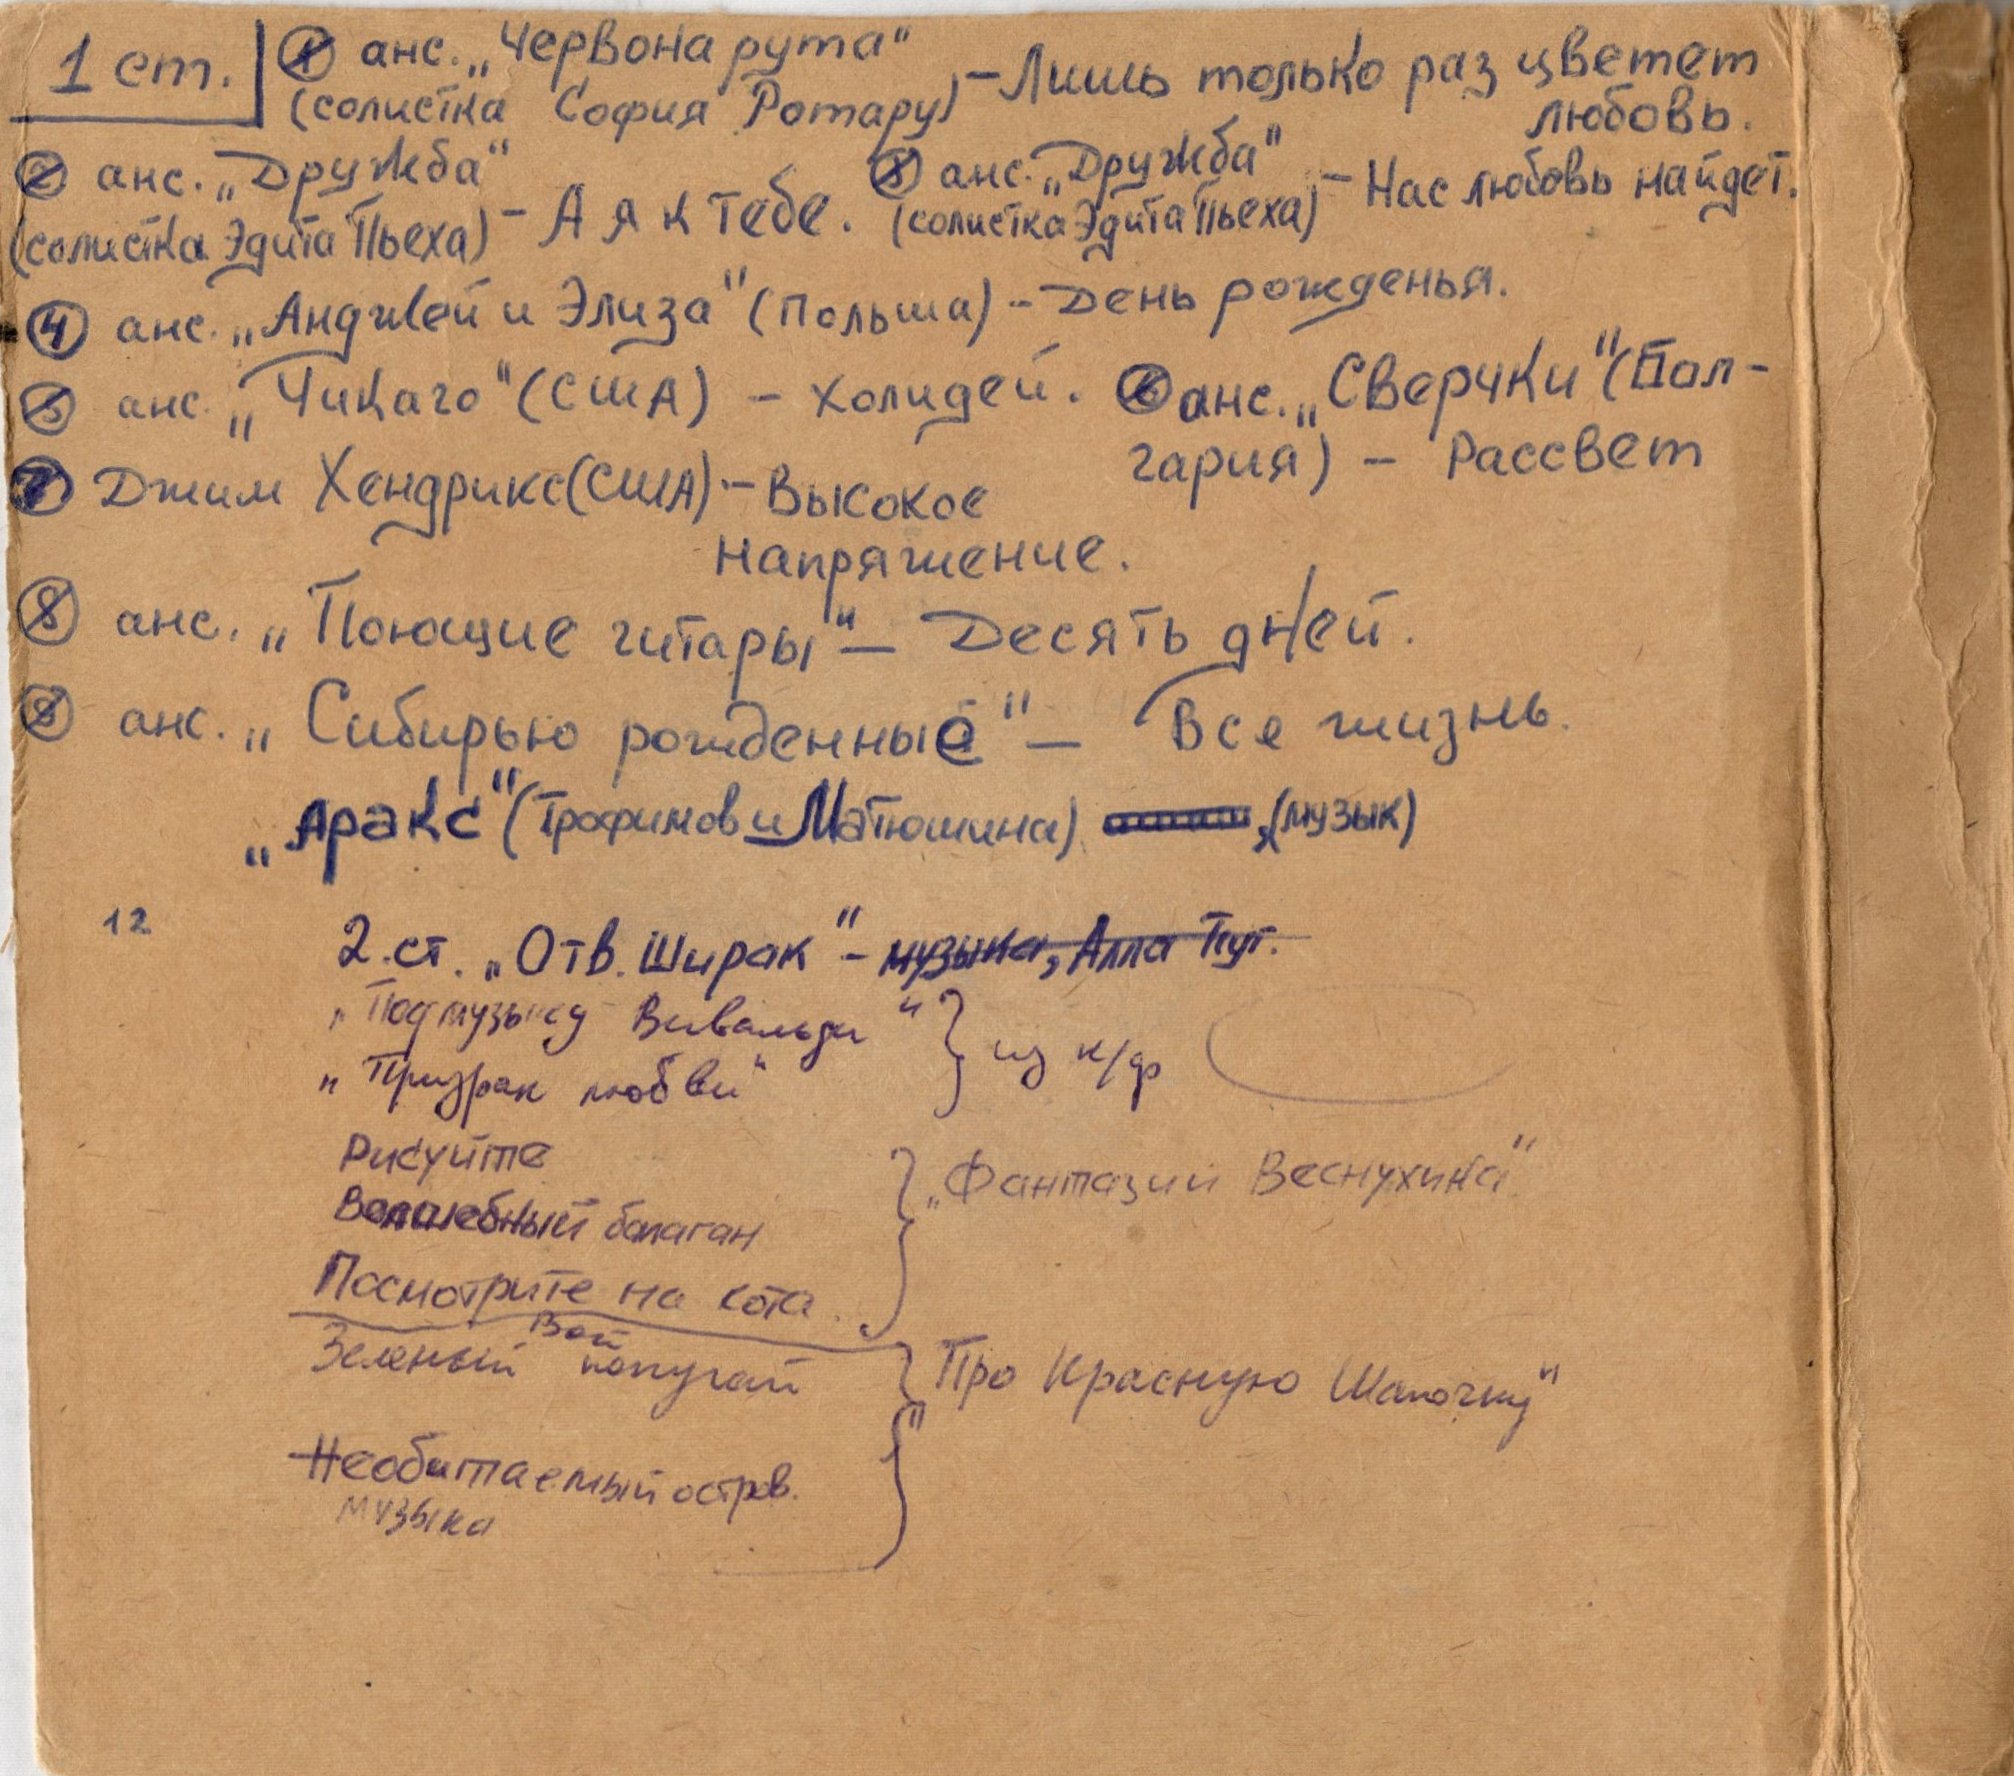 1 ст. ① анс. „Червона рута"
(солистка София Ротару) – Лишь только раз цветет
любовь.
② анс. „Дружба"
(солистка Эдита Пьеха) – А я к тебе.
③ анс. „Дружба"
(солистка Эдита Пьеха) – Нас любовь найдет.
④ анс. „Анджей и Элиза" (Польша) – День рожденья.
⑤ анс. „Чикаго" (США) – Холидей.
⑥ анс. „Сверчки" (Бол-
гария) – Рассвет
⑦ Джим Хендрикс (США) – Высокое
напряжение.
⑧ анс. „Поющие гитары" – Десять дней.
анс. „Сибирью рожденные" – Все жизнь.
„Аракс" (Трофимов и Матюшина) , (музык)
12
2.ст. „Отв. Ширак" – музыка, Алла Пуг.
„Под музыку Вивальди"
„Призрак любви" } из к/ф
Рисуйте
Волшебный балаган
Посмотрите на кота } „Фантазии Веснухина"
Вот
Зеленый попугай } Про Красную Шапочку"
Необитаемый остров.
музыка